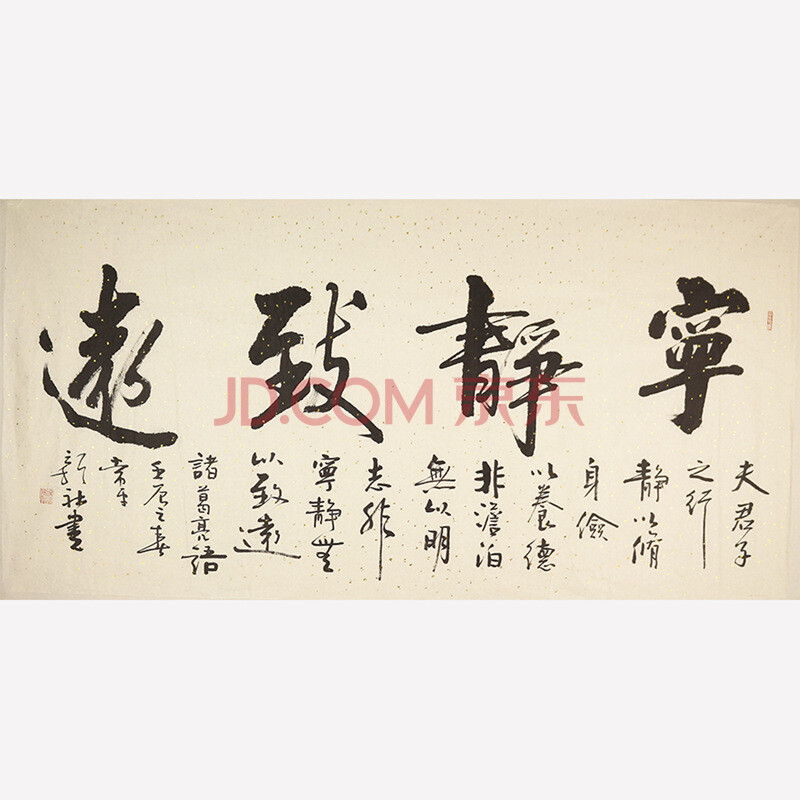 寧靜致遠
夫君子
之行
靜以脩
身儉
以養德
非澹泊
無以明
志非
寧靜無
以致遠
諸葛亮語
壬辰之春
新社書
JD.COM 京东